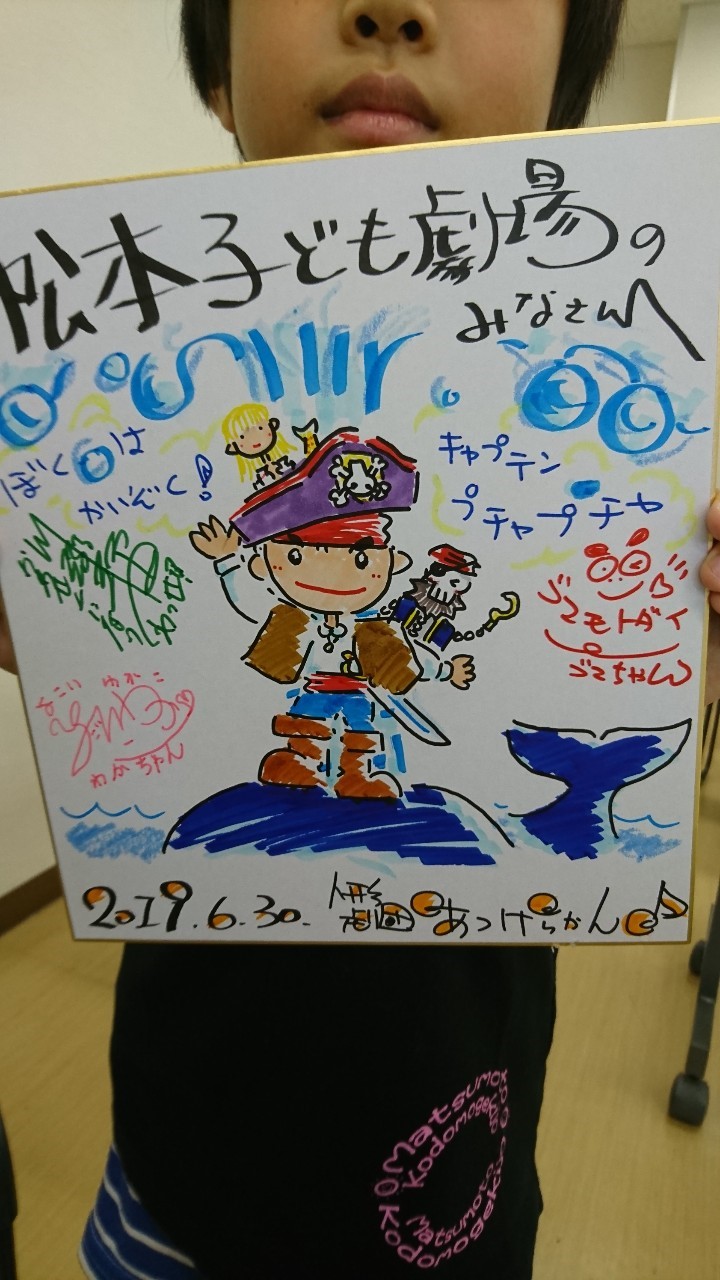 松本子ども劇場の
みなさんへ
ぼくは
かいぞく!
キャプテン
プチャプチャ
ゴマモトダイ
ごまちゃん
よこい ゆかこ
わかちゃん
2019.6.30. 人形劇団あっけらかん♪
Matsumoto
Kodomogekijo
Matsumoto
Kodomogekijo